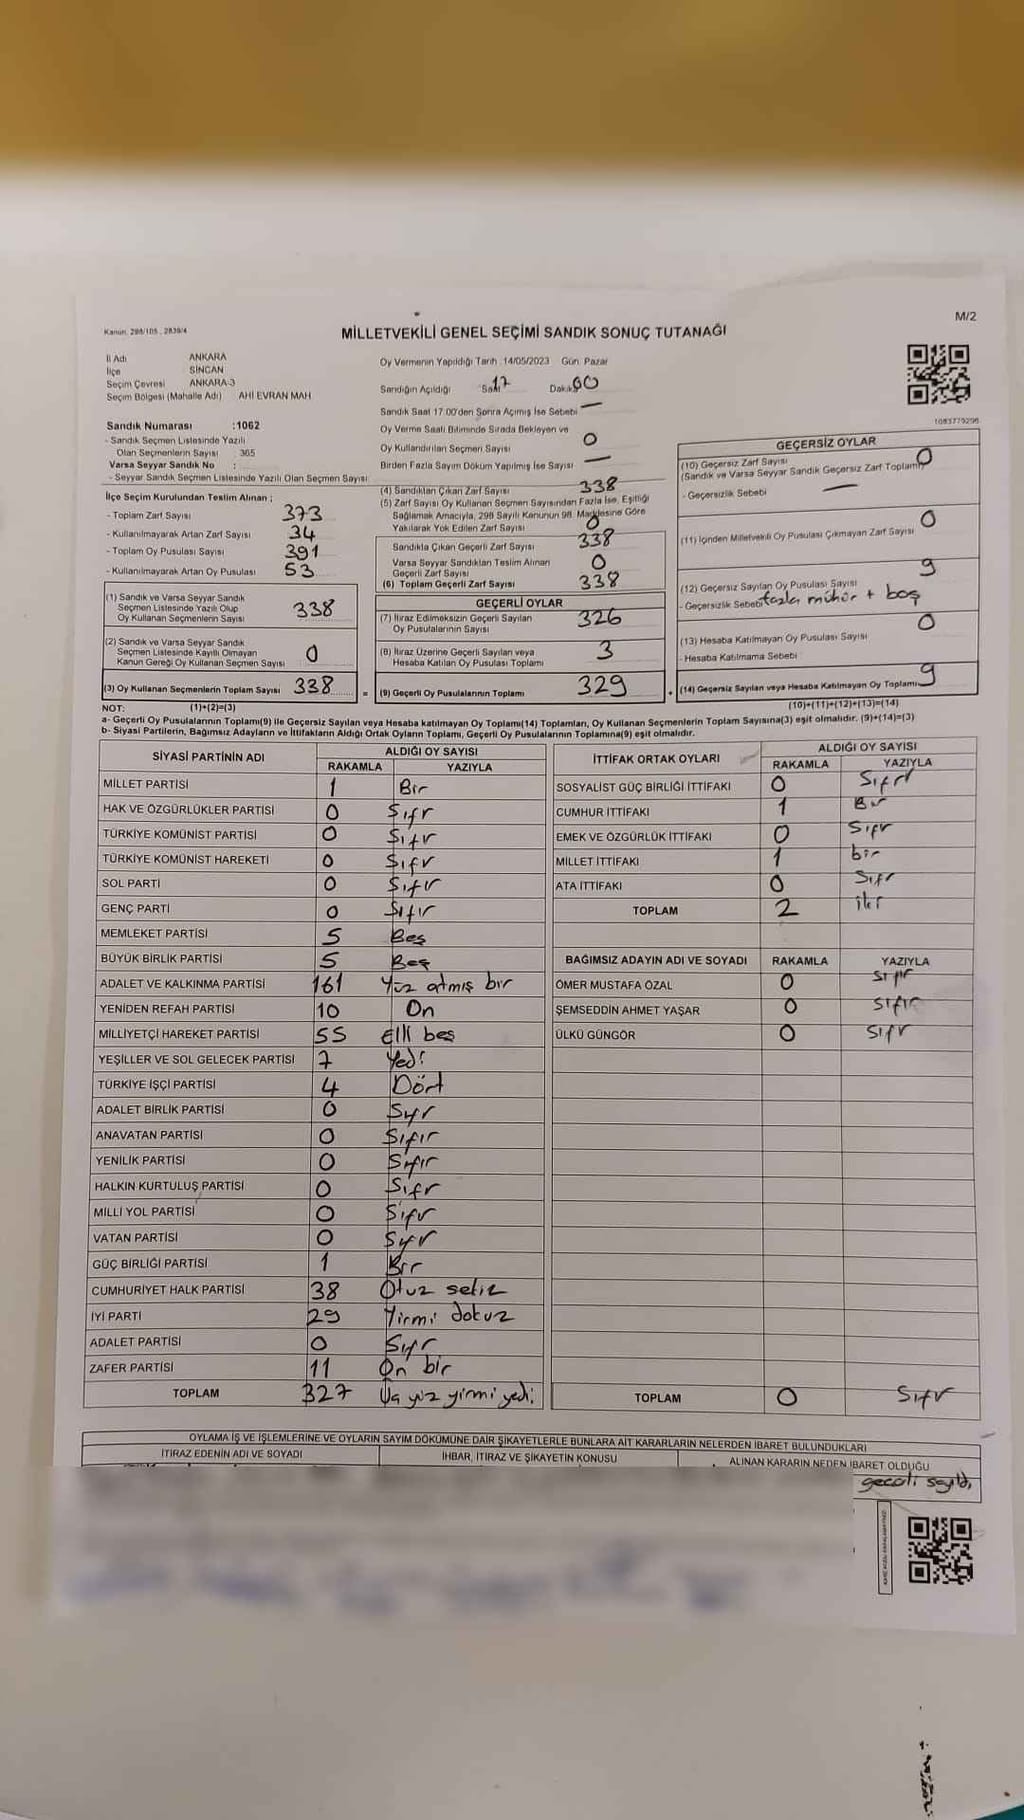 M/2
Kanun, 298/105 , 2839/4
MİLLETVEKİLİ GENEL SEÇİMİ SANDIK SONUÇ TUTANAĞI
İl Adı ANKARA
İlçe SİNCAN
Seçim Çevresi ANKARA-3
Seçim Bölgesi (Mahalle Adı) AHİ EVRAN MAH
Sandık Numarası :1062
- Sandık Seçmen Listesinde Yazılı
Olan Seçmenlerin Sayısı : 365
Varsa Seyyar Sandık No :
- Seyyar Sandık Seçmen Listesinde Yazılı Olan Seçmen Sayısı:
İlçe Seçim Kurulundan Teslim Alınan ;
- Toplam Zarf Sayısı 373
- Kullanılmayarak Artan Zarf Sayısı 34
- Toplam Oy Pusulası Sayısı 391
- Kullanılmayarak Artan Oy Pusulası 53
(1) Sandık ve Varsa Seyyar Sandık
Seçmen Listesinde Yazılı Olup
Oy Kullanan Seçmenlerin Sayısı 338
(2) Sandık ve Varsa Seyyar Sandık
Seçmen Listesinde Kayıtlı Olmayan
Kanun Gereği Oy Kullanan Seçmen Sayısı 0
(3) Oy Kullanan Seçmenlerin Toplam Sayısı 338 =
Oy Vermenin Yapıldığı Tarih :14/05/2023 Gün: Pazar
Sandığın Açıldığı Saat 17 Dakika 00
Sandık Saat 17.00'den Sonra Açılmış İse Sebebi —
Oy Verme Saati Bitiminde Sırada Bekleyen ve
Oy Kullandırılan Seçmen Sayısı 0
Birden Fazla Sayım Döküm Yapılmış İse Sayısı —
(4) Sandıktan Çıkan Zarf Sayısı 338
(5) Zarf Sayısı Oy Kullanan Seçmen Sayısından Fazla İse, Eşitliği
Sağlamak Amacıyla, 298 Sayılı Kanunun 98. Maddesine Göre
Yakılarak Yok Edilen Zarf Sayısı 0
Sandıkta Çıkan Geçerli Zarf Sayısı 338
Varsa Seyyar Sandıktan Teslim Alınan
Geçerli Zarf Sayısı 0
(6) Toplam Geçerli Zarf Sayısı 338
GEÇERLİ OYLAR
(7) İtiraz Edilmeksizin Geçerli Sayılan
Oy Pusulalarının Sayısı 326
(8) İtiraz Üzerine Geçerli Sayılan veya
Hesaba Katılan Oy Pusulası Toplamı 3
(9) Geçerli Oy Pusulalarının Toplamı 329 +
1083779296
GEÇERSİZ OYLAR
(10) Geçersiz Zarf Sayısı
(Sandık ve Varsa Seyyar Sandık Geçersiz Zarf Toplamı) 0
- Geçersizlik Sebebi —
(11) İçinden Milletvekili Oy Pusulası Çıkmayan Zarf Sayısı 0
(12) Geçersiz Sayılan Oy Pusulası Sayısı 9
- Geçersizlik Sebebi fazla mühür + boş
(13) Hesaba Katılmayan Oy Pusulası Sayısı 0
- Hesaba Katılmama Sebebi
(14) Geçersiz Sayılan veya Hesaba Katılmayan Oy Toplamı 9
NOT: (1)+(2)=(3) (10)+(11)+(12)+(13)=(14)
a- Geçerli Oy Pusulalarının Toplamı(9) ile Geçersiz Sayılan veya Hesaba katılmayan Oy Toplamı(14) Toplamları, Oy Kullanan Seçmenlerin Toplam Sayısına(3) eşit olmalıdır. (9)+(14)=(3)
b- Siyasi Partilerin, Bağımsız Adayların ve İttifakların Aldığı Ortak Oyların Toplamı, Geçerli Oy Pusulalarının Toplamına(9) eşit olmalıdır.
SİYASİ PARTİNİN ADI ALDIĞI OY SAYISI
RAKAMLA YAZIYLA
MİLLET PARTİSİ 1 Bir
HAK VE ÖZGÜRLÜKLER PARTİSİ 0 Sıfr
TÜRKİYE KOMÜNİST PARTİSİ 0 Sıfr
TÜRKİYE KOMÜNİST HAREKETİ 0 Sıfr
SOL PARTİ 0 Sıfır
GENÇ PARTİ 0 Sıfır
MEMLEKET PARTİSİ 5 Beş
BÜYÜK BİRLİK PARTİSİ 5 Beş
ADALET VE KALKINMA PARTİSİ 161 Yüz atmış bir
YENİDEN REFAH PARTİSİ 10 On
MİLLİYETÇİ HAREKET PARTİSİ 55 Elli beş
YEŞİLLER VE SOL GELECEK PARTİSİ 7 Yedi
TÜRKİYE İŞÇİ PARTİSİ 4 Dört
ADALET BİRLİK PARTİSİ 0 Sıfr
ANAVATAN PARTİSİ 0 Sıfır
YENİLİK PARTİSİ 0 Sıfır
HALKIN KURTULUŞ PARTİSİ 0 Sıfr
MİLLİ YOL PARTİSİ 0 Sıfr
VATAN PARTİSİ 0 Sıfr
GÜÇ BİRLİĞİ PARTİSİ 1 Bir
CUMHURİYET HALK PARTİSİ 38 Otuz sekiz
İYİ PARTİ 29 Yirmi dokuz
ADALET PARTİSİ 0 Sıfr
ZAFER PARTİSİ 11 On bir
TOPLAM 327 Üç yüz yirmi yedi
İTTİFAK ORTAK OYLARI ALDIĞI OY SAYISI
RAKAMLA YAZIYLA
SOSYALİST GÜÇ BİRLİĞİ İTTİFAKI 0 Sıfır
CUMHUR İTTİFAKI 1 Bir
EMEK VE ÖZGÜRLÜK İTTİFAKI 0 Sıfır
MİLLET İTTİFAKI 1 bir
ATA İTTİFAKI 0 Sıfr
TOPLAM 2 iki
BAĞIMSIZ ADAYIN ADI VE SOYADI RAKAMLA YAZIYLA
ÖMER MUSTAFA ÖZAL 0 sıfır
ŞEMSEDDİN AHMET YAŞAR 0 sıfır
ÜLKÜ GÜNGÖR 0 sıfr
TOPLAM 0 Sıfr
OYLAMA İŞ VE İŞLEMLERİNE VE OYLARIN SAYIM DÖKÜMÜNE DAİR ŞİKAYETLERLE BUNLARA AİT KARARLARIN NELERDEN İBARET BULUNDUKLARI
İTİRAZ EDENİN ADI VE SOYADI İHBAR, İTİRAZ VE ŞİKAYETİN KONUSU ALINAN KARARIN NEDEN İBARET OLDUĞU
geçerli sayıldı